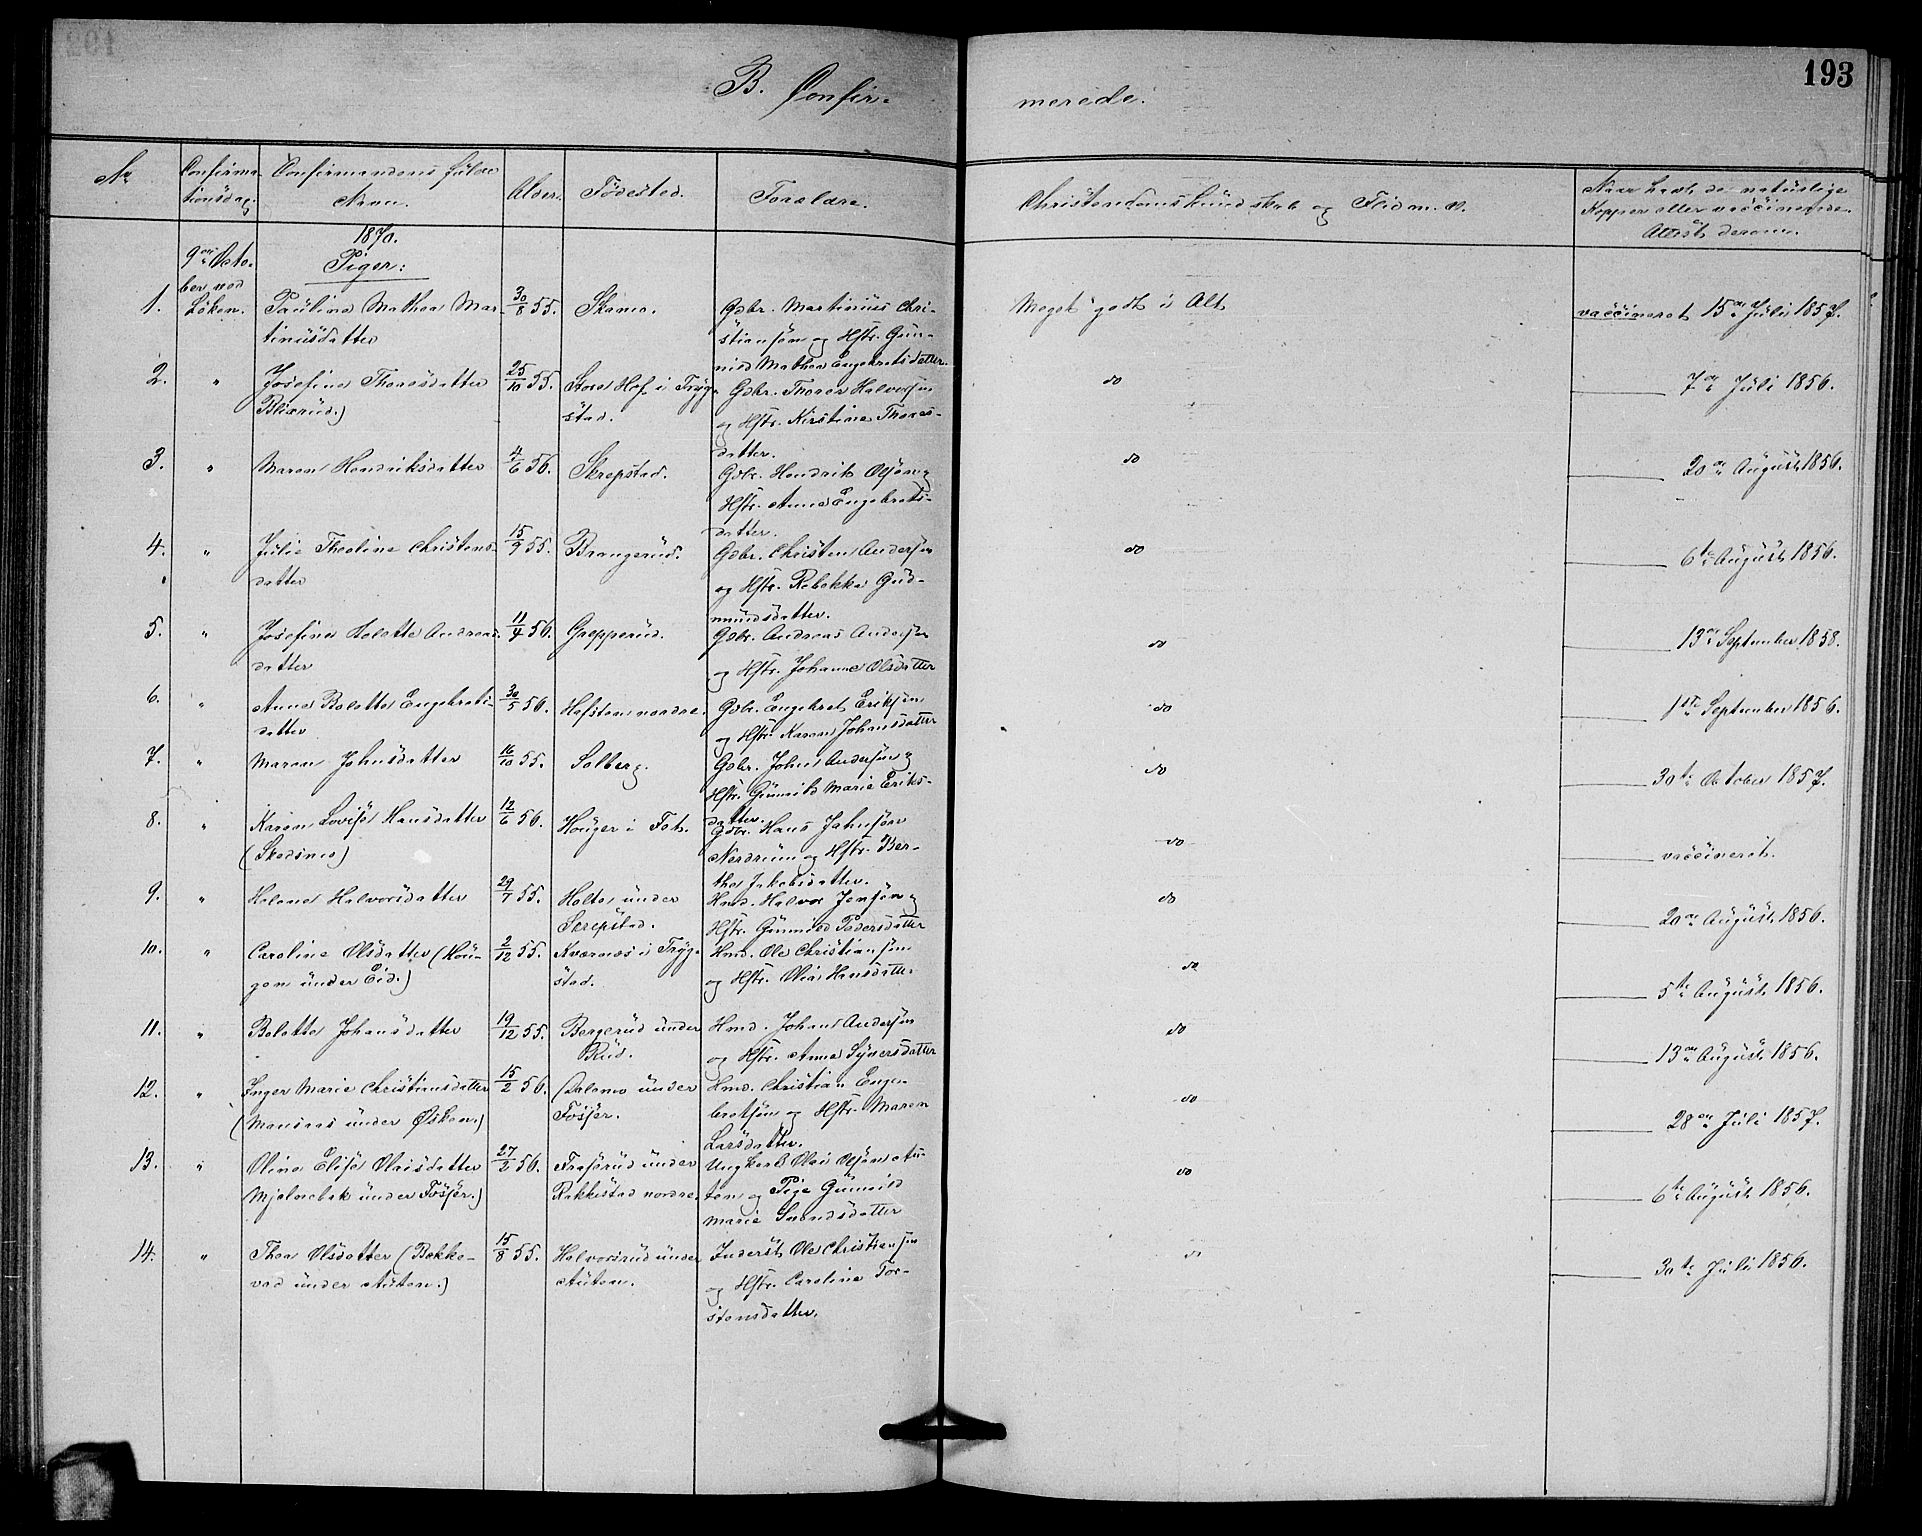 193
B. Confir-
merede.
No
Confirma-
tionsdag.
Confirmandens fulde
Navn.
Alder.
Fødested.
Forældre.
Christendomskundskab og Flid m. v.
Naar havt de naturlige
Kopper eller vaccinerede.
Attest derom.
1870.
9de Octo-
ber ved
Løken.
Piger:
1.
Pauline Mathea Mar-
tinusdatter
30/8 55.
Skamo.
Gdbr. Martinius Chri-
stiansøn og Hstr. Gun-
nild Mathea Engebretsdatter.
Meget godt i Alt
vaccineret 15de Juli 1857.
2.
"
Josefine Thoresdatter
Blixrud.)
25/10 55.
Store Hof i Tryg-
stad.
Gdbr. Thorer Halvorsen
og Hstr. Kirstine Thores-
datter.
do
7de Juli 1856.
3.
"
Maren Hendriksdatter
4/6 56.
Skrepstad.
Gdbr. Hendrik Olsøn og
Hstr. Anne Engebrets-
datter.
do
20de August 1856.
4.
"
Julie Theoline Christens-
datter
15/9 55.
Brangerud.
Gdbr. Christen Andersen
og Hstr. Rebekka Gud-
mundsdatter.
do
6te August 1856.
5.
"
Josefine Helette Andreas-
datter
11/4 56.
Grepperud.
Gdbr. Andreas Andersen
og Hstr. Johanne Olsdatter
do
13de September 1858.
6.
"
Anne Bolette Engebrets-
datter
30/5 56.
Hofsten nordre.
Gdbr. Engebret Eriksen
og Hstr. Karen Johansdatter
do
1ste September 1856.
7.
"
Maren Johnsdatter
16/10 55.
Solberg.
Gdbr. John Andersen og
Hstr. Gunnild Marie Eriks-
datter.
do
30te October 1857.
8.
"
Karen Lovise Hansdatter
(Skedsmo)
12/6 56.
Houger i Feh.
Gdbr. Hans Jahnsøn
Nordrum og Hstr. Ber-
the Jakobsdatter.
do
vaccineret.
9.
"
Helene Halvorsdatter
29/7 55.
Holter under
Skrepstad.
Hmd. Halvor Jensen og
Hstr. Gunnild Pedersdatter
do
20de August 1856.
10.
"
Caroline Olsdatter (Hou-
gen under Eid.)
2/12 55.
Kvernes i Tryg-
stad.
Hmd. Ole Christiansøn
og Hstr. Olia Hansdatter
do
5te August 1856.
11.
"
Bolette Johansdatter
19/12 55.
Bergerud under
Rud.
Hmd. Johan Andersen
og Hstr. Anne Syversdatter
do
13de August 1856.
12.
"
Inger Marie Christiansdatter
(Monsaas under Øsken.)
15/2 56.
Dalemo under
Fosser.
Hmd. Christian Enge-
bretsøn og Hstr. Maren
Larsdatter.
do
28de Juli 1857.
13.
"
Oline Elise Olaisdatter
Mjelnebak under Fosser.)
27/2 56.
Frøserud under
Rakkestad nordre.
Ungkarl Olai Olsøn Au-
ten og Pige Gunnild
Marie Svendsdatter
do
6te August 1856.
14.
"
Thea Olsdatter (Bække-
vad under Auten.)
15/8 55.
Halvorsrud under
Auten.
Inderst Ole Christiansen
og Hstr. Caroline Tor-
stensdatter.
do
30te Juli 1856.